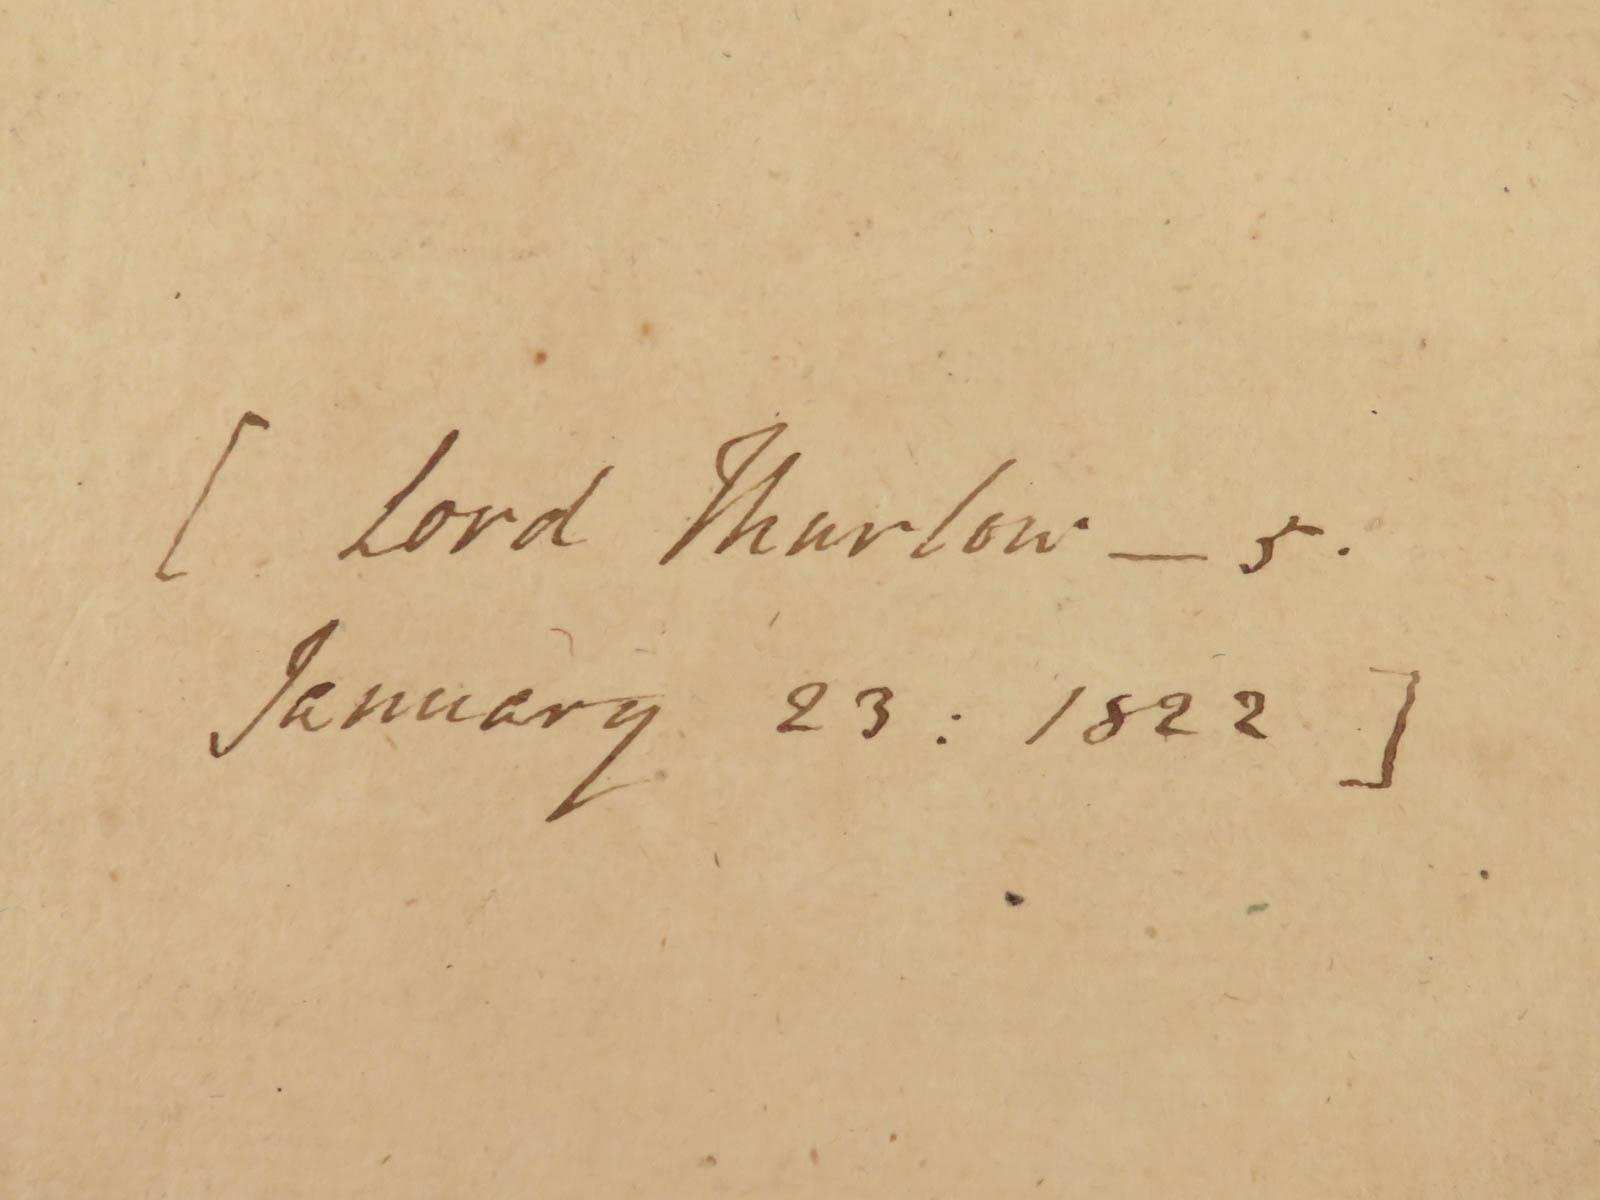 [ Lord Thurlow — 5.
January 23 : 1822 ]